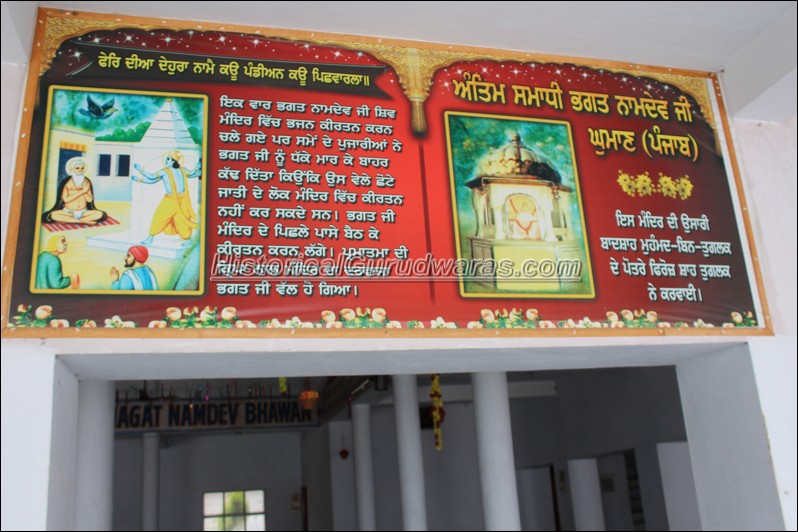 ਫੇਰਿ ਦੀਆ ਦੇਹੁਰਾ ਨਾਮੈ ਕਉ ਪੰਡੀਅਨ ਕਉ ਪਿਛਵਾਰਲਾ॥
ਇਕ ਵਾਰ ਭਗਤ ਨਾਮਦੇਵ ਜੀ ਸ਼ਿਵ
ਮੰਦਿਰ ਵਿੱਚ ਭਜਨ ਕੀਰਤਨ ਕਰਨ
ਚਲੇ ਗਏ ਪਰ ਸਮੇਂ ਦੇ ਪੁਜਾਰੀਆਂ ਨੇ
ਭਗਤ ਜੀ ਨੂੰ ਧੱਕੇ ਮਾਰ ਕੇ ਬਾਹਰ
ਕੱਢ ਦਿੱਤਾ ਕਿਉਂਕਿ ਉਸ ਵੇਲੇ ਛੋਟੇ
ਜਾਤੀ ਦੇ ਲੋਕ ਮੰਦਿਰ ਵਿੱਚ ਕੀਰਤਨ
ਨਹੀਂ ਕਰ ਸਕਦੇ ਸਨ। ਭਗਤ ਜੀ
ਮੰਦਿਰ ਦੇ ਪਿਛਲੇ ਪਾਸੇ ਬੈਠ ਕੇ
ਕੀਰਤਨ ਕਰਨ ਲੱਗੇ। ਪ੍ਰਮਾਤਮਾ ਦੀ
ਭਗਤ ਜੀ ਵੱਲ ਹੋ ਗਿਆ।
ਅੰਤਿਮ ਸਮਾਧੀ ਭਗਤ ਨਾਮਦੇਵ ਜੀ
ਘੁਮਾਣ (ਪੰਜਾਬ)
ਇਸ ਮੰਦਿਰ ਦੀ ਉਸਾਰੀ
ਬਾਦਸ਼ਾਹ ਮੁਹੰਮਦ-ਬਿਨ-ਤੁਗਲਕ
ਦੇ ਪੋਤਰੇ ਫਿਰੋਜ਼ ਸ਼ਾਹ ਤੁਗਲਕ
ਨੇ ਕਰਵਾਈ।
HistoricalGurudwaras.com
AGAT NAMDEV BHAWAN